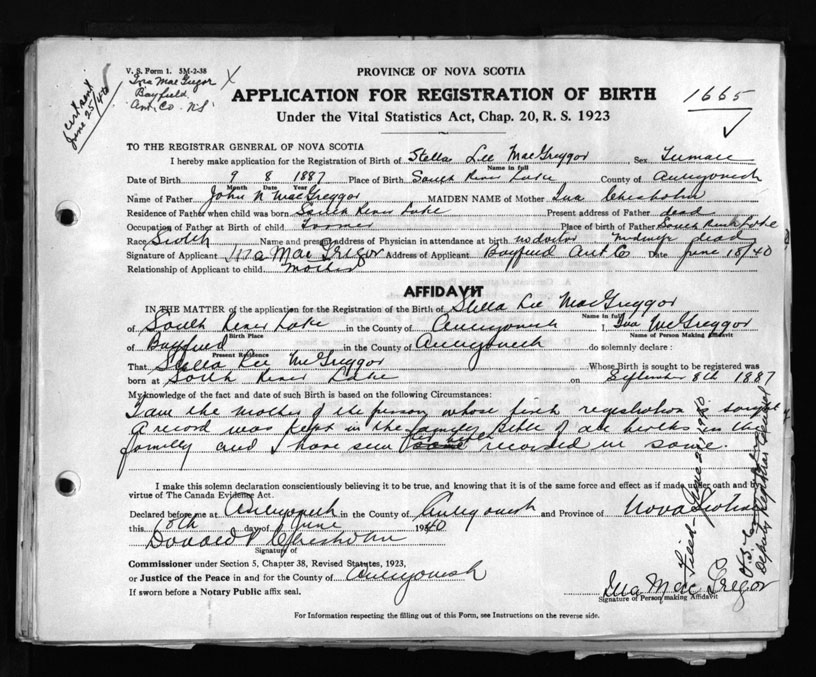 V. S. Form 1. 3M-2-38
Iva MacGregor X
Bayfield
Ant. Co. N.S.
cert sent
June 25/40
PROVINCE OF NOVA SCOTIA
APPLICATION FOR REGISTRATION OF BIRTH
1665
Under the Vital Statistics Act, Chap. 20, R. S. 1923
TO THE REGISTRAR GENERAL OF NOVA SCOTIA
I hereby make application for the Registration of Birth of Stella Lee MacGreggor Sex Female
Name in full
Date of Birth 9 8 1887 Place of Birth South River Lake County of Antigonish
Month Date Year
Name of Father John N MacGreggor MAIDEN NAME of Mother Iva Chisholm
Residence of Father when child was born South River Lake Present address of Father dead
Occupation of Father at Birth of child Farmer Place of birth of Father South River Lake
Race Scotch Name and present address of Physician in attendance at birth no doctor midwife dead
Signature of Applicant Iva MacGregor Address of Applicant Bayfield Ant Co Date June 18/40
Relationship of Applicant to child mother
AFFIDAVIT
IN THE MATTER of the application for the Registration of the Birth of Stella Lee MacGreggor
Name in full
of South River Lake in the County of Antigonish I, Iva McGreggor
Birth Place Name of Person Making Affidavit
of Bayfield in the County of Antigonish do solemnly declare :
Present Residence
That Stella Lee McGreggor Whose Birth is sought to be registered was
born at South River Lake on September 8th 1887
My knowledge of the fact and date of such Birth is based on the following Circumstances:
I am the mother of the person whose birth registration is sought
a record was kept in the family Bible of all births in the
family and I have seen her birth recorded in same.
I make this solemn declaration conscientiously believing it to be true, and knowing that it is of the same force and effect as if made under oath and by
virtue of The Canada Evidence Act.
Declared before me at Antigonish in the County of Antigonish and Province of Nova Scotia
this 18th day of June 1940
Donald P Chisholm
Signature of
Commissioner under Section 5, Chapter 38, Revised Statutes, 1923,
or Justice of the Peace in and for the County of Antigonish
If sworn before a Notary Public affix seal.
Iva MacGregor
Signature of Person making Affidavit
For Information respecting the filling out of this Form, see Instructions on the reverse side.
Filed June 1940
Deputy Registrar General